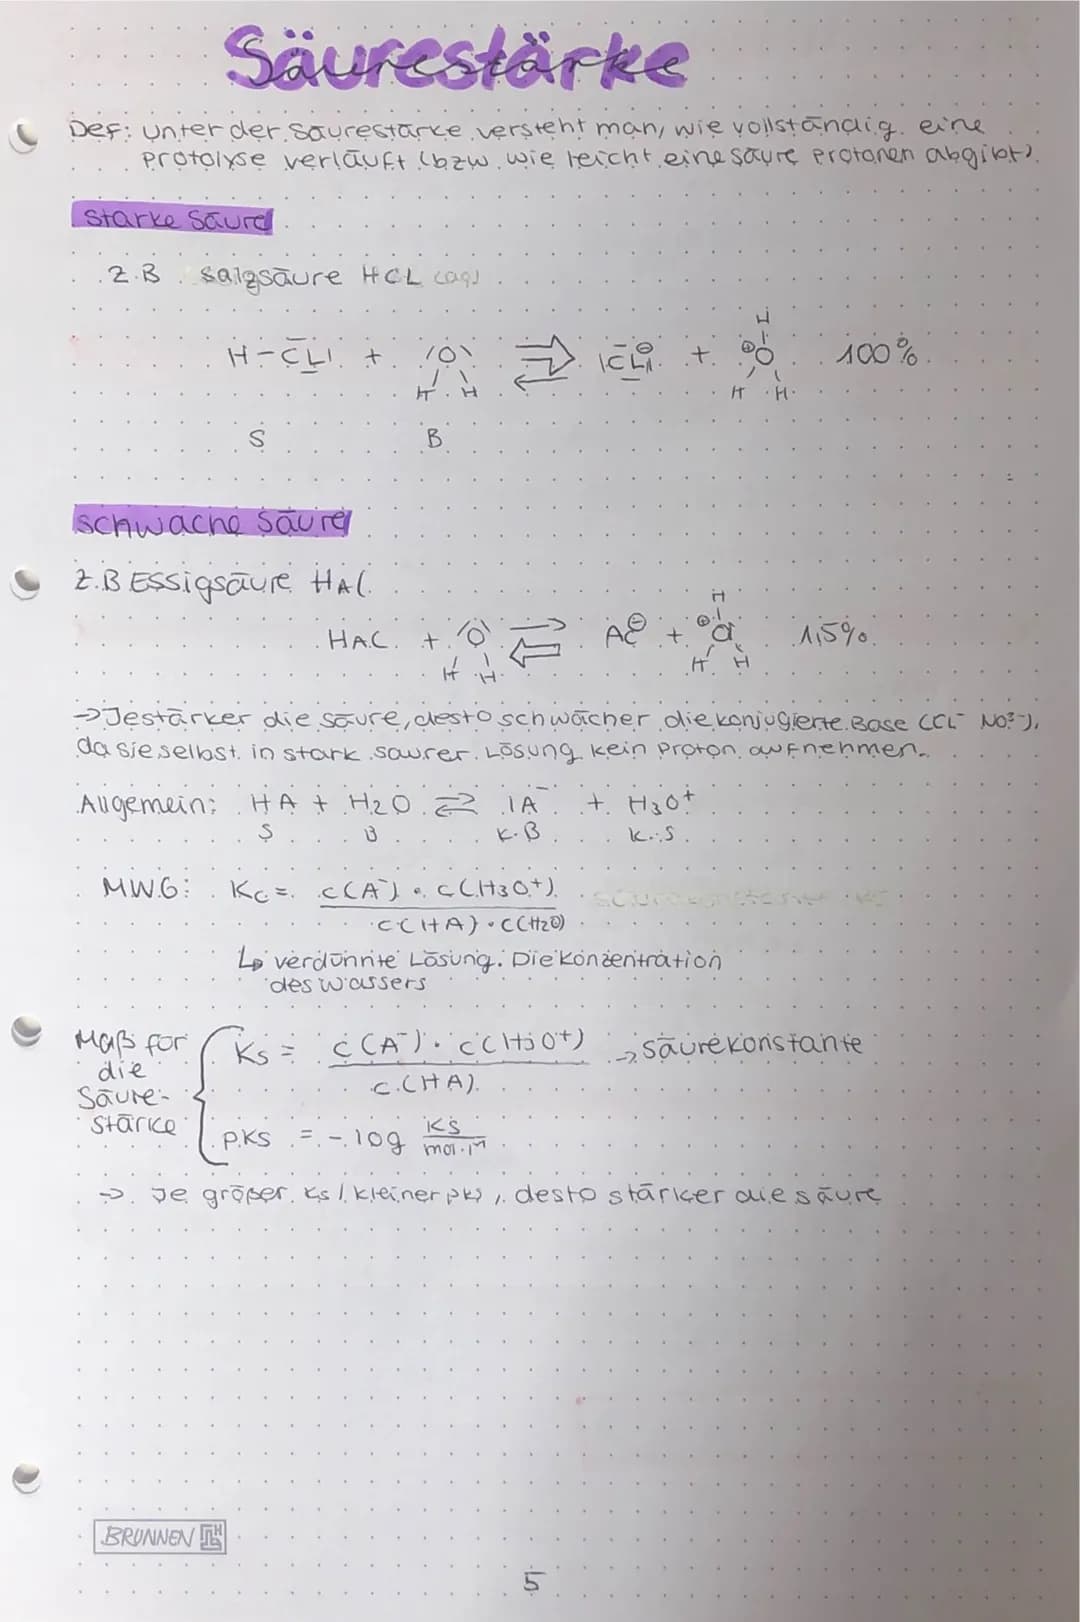 Säurestärke
Def: unter der Säurestärke versteht man, wie vollständig eine
Protolyse verläuft (bzw. wie leicht eine Säure Protonen abgibt).
starke Säure
z.B. Salzsäure HCL (aq)
H-CL| + |O| ⇌ |CL|⊖ + ⊕O H 100%
H H H H
S B
schwache Säure
z.B Essigsäure HAC
HAC + O ⇌ AC⊖ + ⊕O H 1,5%
H H H H
→ Je stärker die Säure, desto schwächer die konjugierte Base (CL⁻ NO³⁻),
da sie selbst in stark saurer Lösung kein Proton aufnehmen.
Allgemein: HA + H₂O ⇌ |A⁻ + H₃O⁺
S B K.B K.S
MWG: Kc = c(A⁻) · c(H₃O⁺)
c(HA) · c(H₂O)
↳ verdünnte Lösung. Die Konzentration
des Wassers
Maß für die Säure-stärke
Ks = c(A⁻) · c(H₃O⁺) → Säurekonstante
c(HA)
pKs = -log Ks
mol·l⁻¹
→ Je größer Ks / kleiner pKs, desto stärker die Säure
BRUNNEN
5